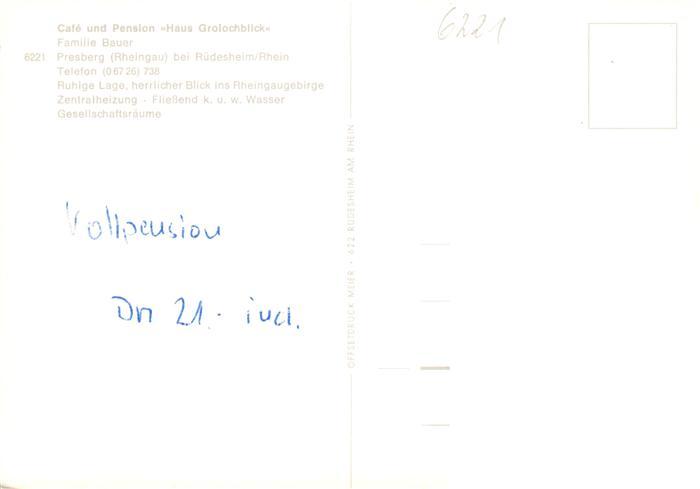 Café und Pension »Haus Grolochblick«
Familie Bauer
6221 Presberg (Rheingau) bei Rüdesheim/Rhein
Telefon (0 67 26) 738
Ruhige Lage, herrlicher Blick ins Rheingaugebirge
Zentralheizung - Fließend k. u. w. Wasser
Gesellschaftsräume
Vollpension
DM 21.- incl.
OFFSETDRUCK MEIER · 622 RÜDESHEIM AM RHEIN
6221